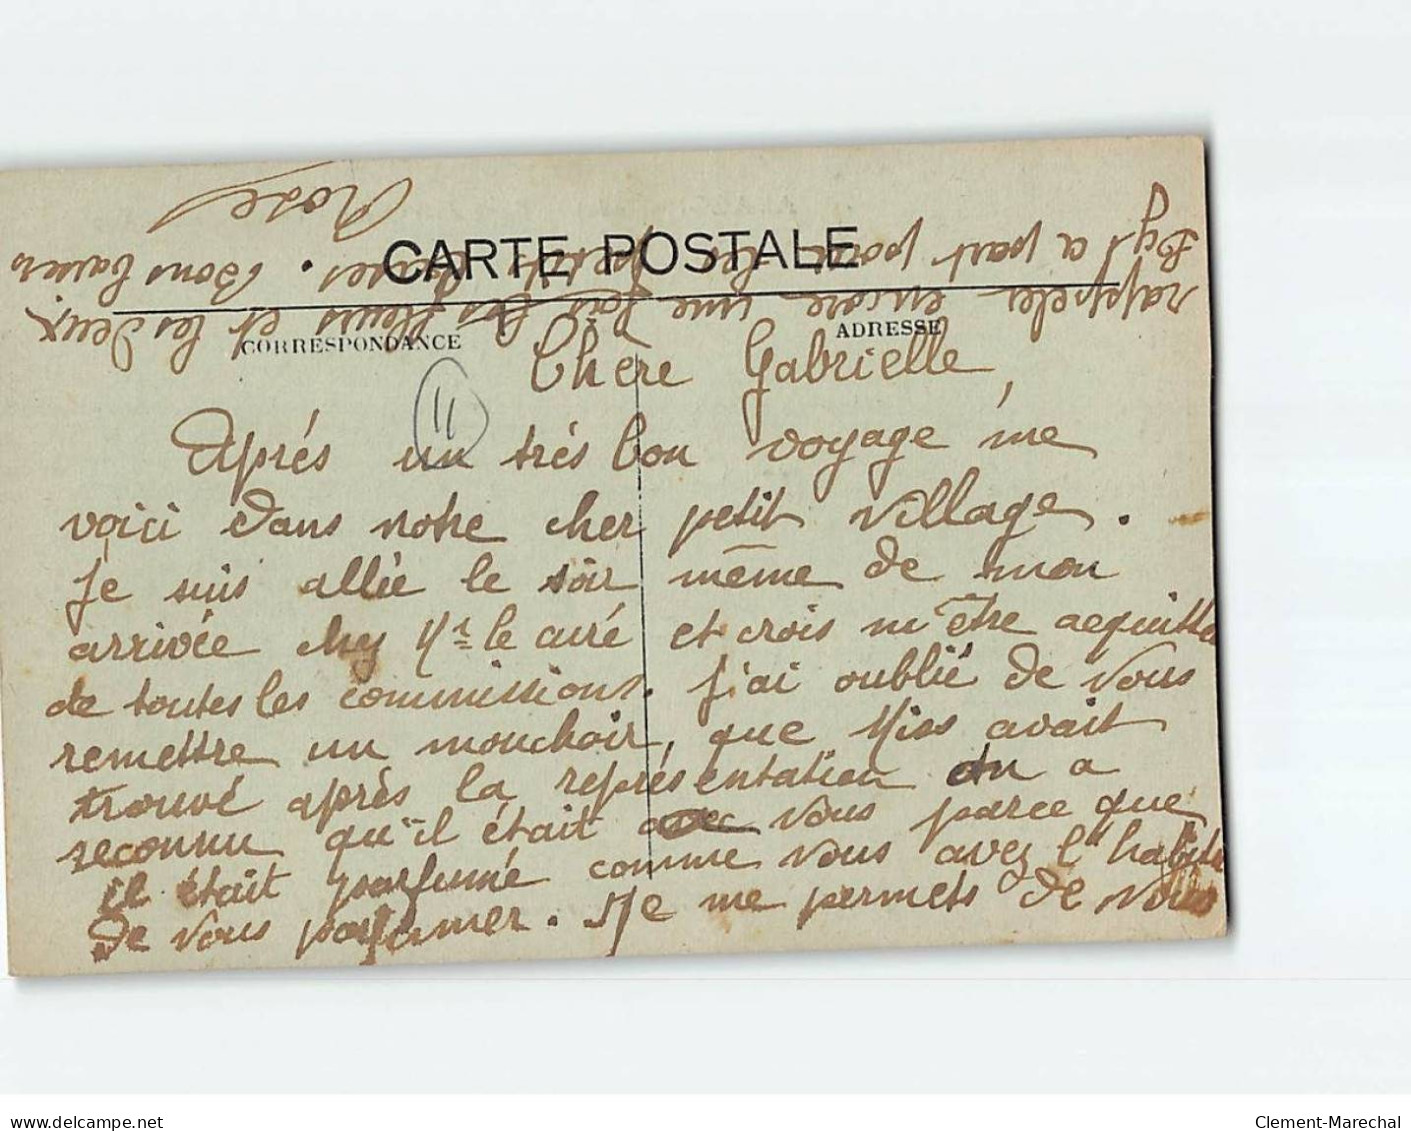 CARTE POSTALE
CORRESPONDANCE
ADRESSE
11
Chère Gabrielle,
Après un très bon voyage me
voici dans notre cher petit village.
Je suis allée le soir même de mon
arrivée chez Mr le curé et crois m'être acquittée
de toutes les commissions. J'ai oublié de vous
remettre un mouchoir, que Miss avait
trouvé après la représentation on a
reconnu qu'il était à vous parce que
il était parfumé comme vous avez l'habitude
de vous parfumer. Je me permets de vous
rappeler encore une fois les fleurs et les deux
petits. Bons baisers
Rose
delcampe.net
Clement-Marechal